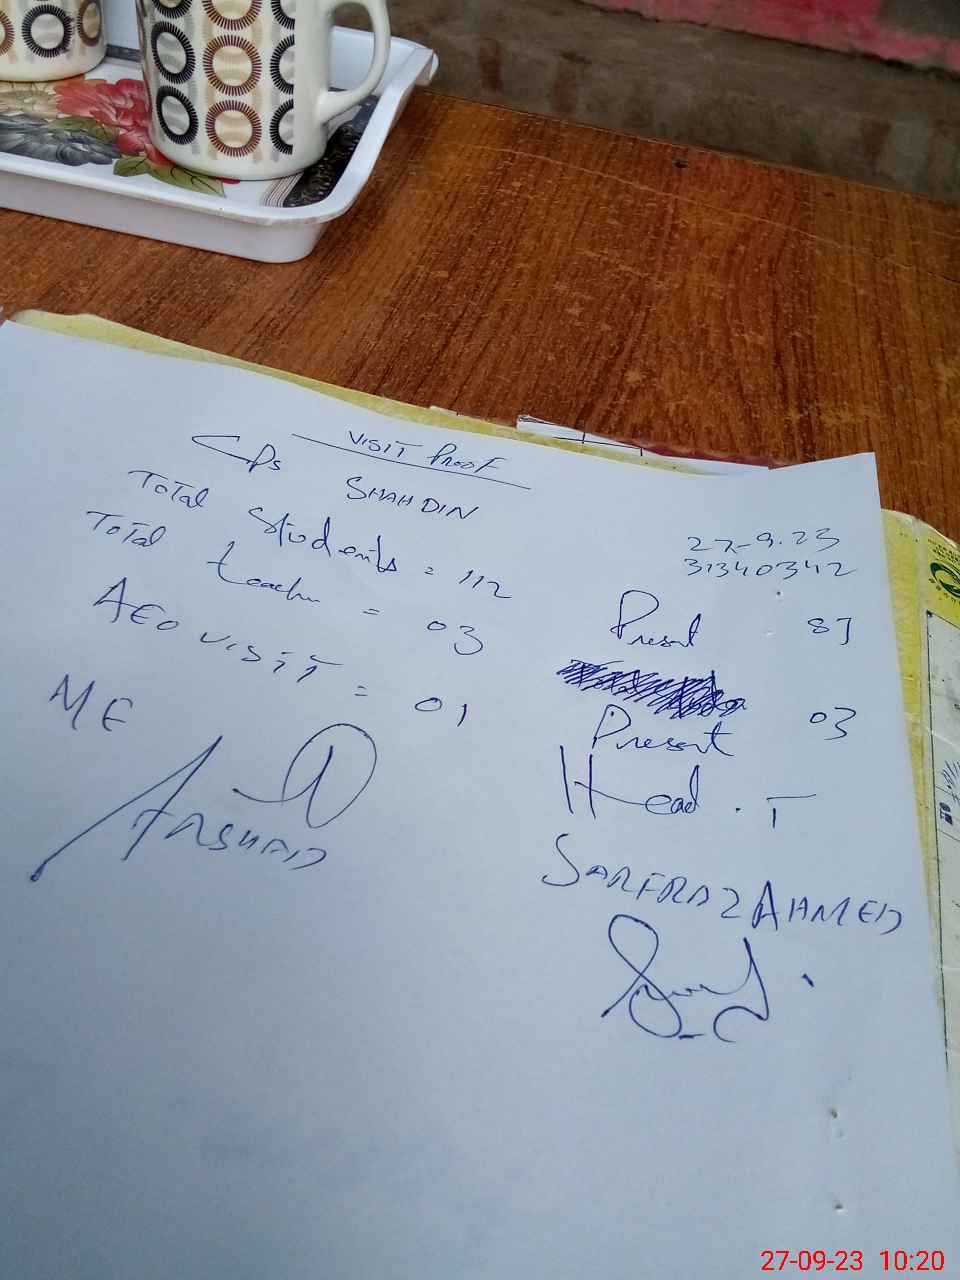 VISIT PROOF
GPS SHAHDIN
27-9-23
31340342
Total Students = 112
Present 87
Total teacher = 03
Present 03
AEO VISIT = 01
Head . T
ME
ARSHAD
SARFRAZ AHMED
27-09-23 10:20